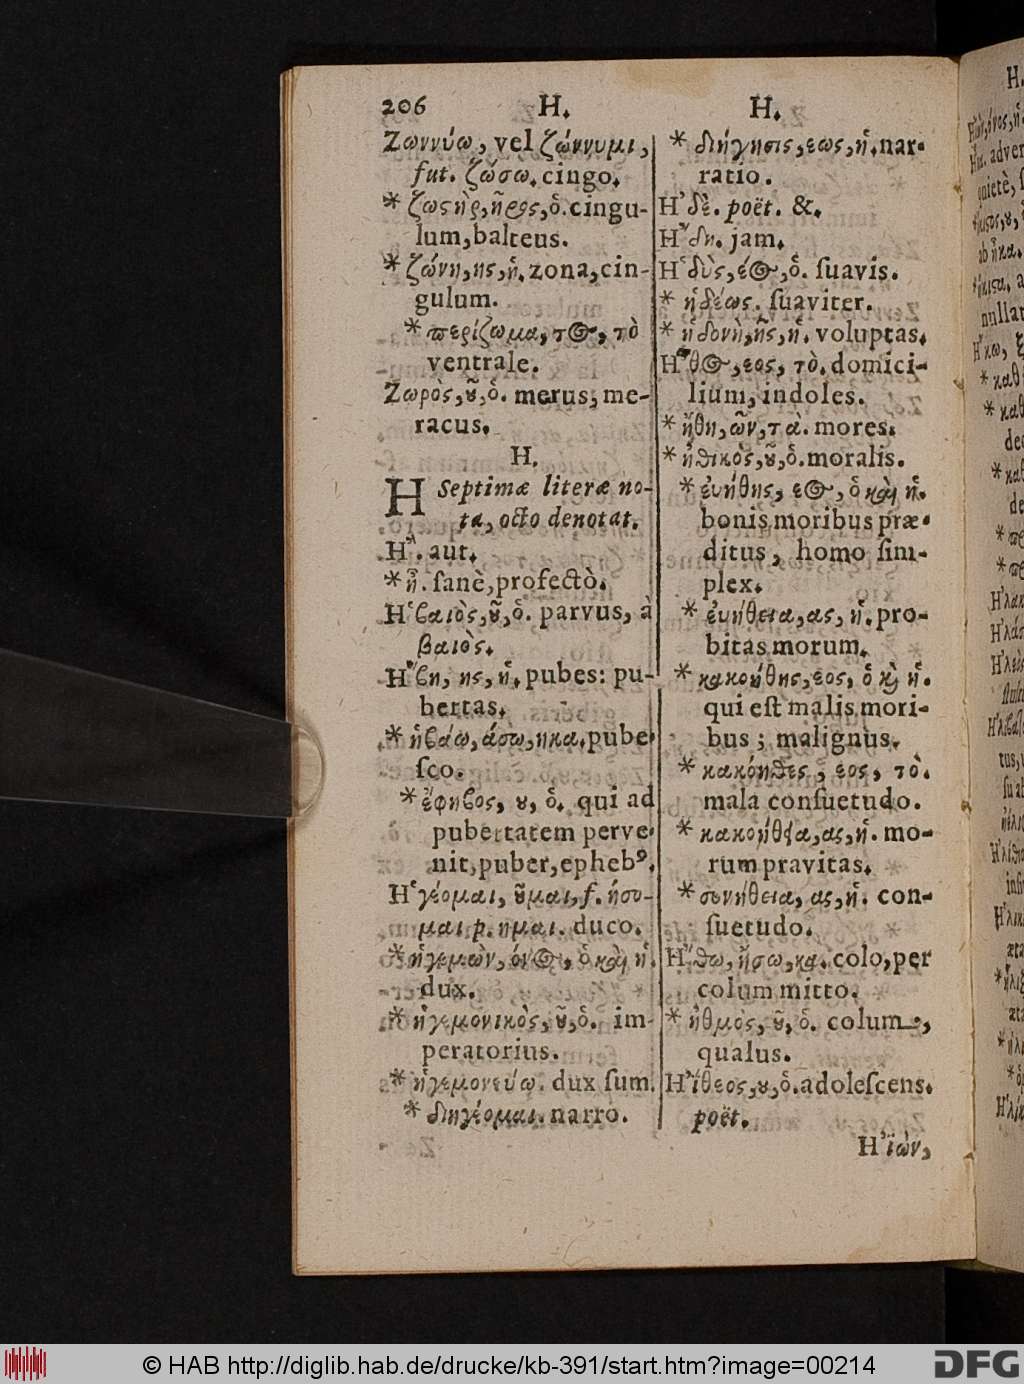 206 H. H.
Ζωννύω, vel ζώννυμι,
fut. ζώσω. cingo.
* ζωστὴρ, ῆρος, ὁ. cingu-
lum, balteus.
* ζώνη, ης, ἡ. zona, cin-
gulum.
* περίζωμα, τος, τὸ
ventrale.
Ζωρὸς, οῦ, ὁ. merus; me-
racus.
H.
H Septimæ literæ no-
ta, octo denotat.
Ἢ. aut.
* ἦ. sanè, profectò.
Ἡβαιὸς, οῦ, ὁ. parvus, à
βαιὸς.
Ἥβη, ης, ἡ. pubes: pu-
bertas.
* ἡβάω, άσω, ηκα. pube-
sco.
* ἔφηβος, ου, ὁ. qui ad
pubertatem perve-
nit, puber, ephebꝰ.
Ἡγέομαι, οῦμαι, f. ήσο-
μαι p. ημαι. duco.
* ἡγεμὼν, όνος, ὁ καὶ ἡ.
dux.
* ἡγεμονικὸς, οῦ, ὁ. im-
peratorius.
* ἡγεμονεύω. dux sum.
* διηγέομαι. narro.
* διήγησις, εως, ἡ. nar-
ratio.
Ἠδὲ. poët. &.
Ἤδη. jam.
Ἡδὺς, έος, ὁ. suavis.
* ἡδέως. suaviter.
* ἡδονὴ, ῆς, ἡ. voluptas.
Ἦθος, εος, τὸ. domici-
lium, indoles.
* ἤθη, ῶν, τὰ. mores.
* ἠθικὸς, οῦ, ὁ. moralis.
* ἐυήθης, εος, ὁ καὶ ἡ.
bonis moribus præ-
ditus, homo sim-
plex.
* ἐυήθεια, ας, ἡ. pro-
bitas morum.
* κακοήθης, εος, ὁ καὶ ἡ.
qui est malis mori-
bus; malignus.
* κακόηθες, εος, τὸ.
mala consuetudo.
* κακοήθεια, ας, ἡ. mo-
rum pravitas.
* συνήθεια, ας, ἡ. con-
suetudo.
Ἤθω, ἤσω, κα. colo, per
colum mitto.
* ἠθμὸς, οῦ, ὁ. colum,
qualus.
Ἠΐθεος, ου, ὁ. adolescens.
poët.
Ἠϊὼν,
© HAB http://diglib.hab.de/drucke/kb-391/start.htm?image=00214
DFG